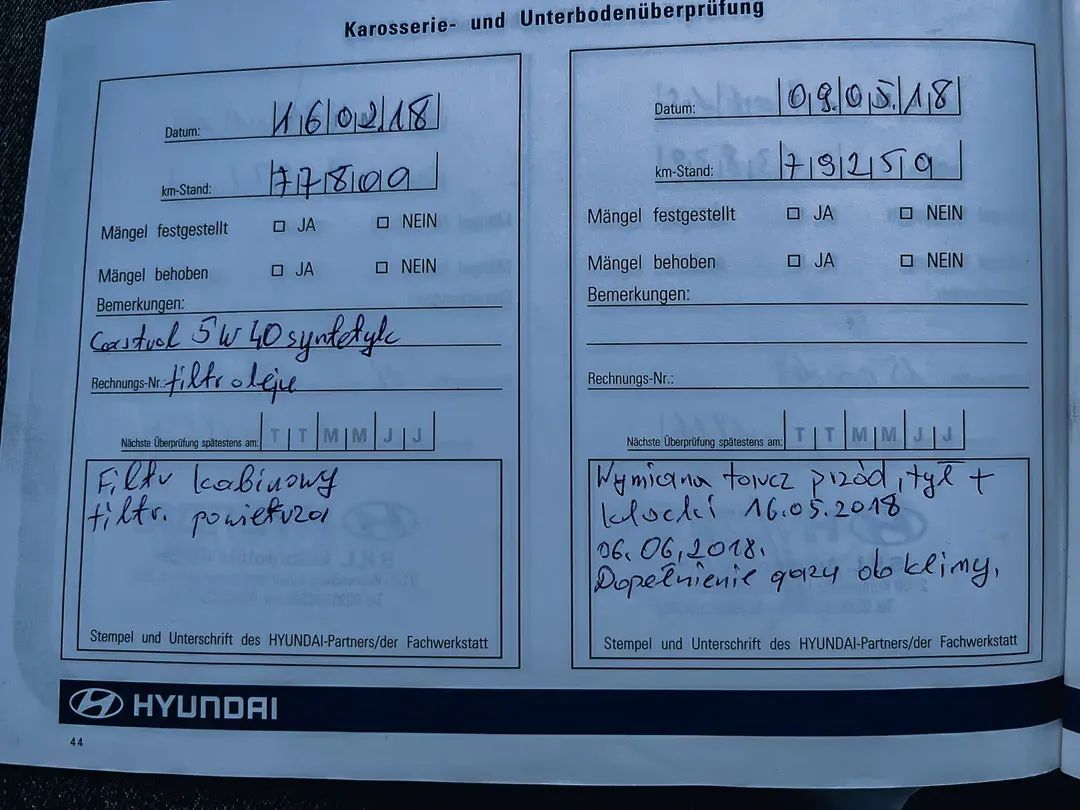 Karosserie- und Unterbodenüberprüfung
Datum: 16 02 18
km-Stand: 77800
Mängel festgestellt JA NEIN
Mängel behoben JA NEIN
Bemerkungen:
Castrol 5W40 syntetyk
Rechnungs-Nr.: filtr oleju
Nächste Überprüfung spätestens am: T T M M J J
Filtr kabinowy
filtr. powietrza
Stempel und Unterschrift des HYUNDAI-Partners/der Fachwerkstatt
Datum: 09.05.18
km-Stand: 79250
Mängel festgestellt JA NEIN
Mängel behoben JA NEIN
Bemerkungen:
Rechnungs-Nr.:
Nächste Überprüfung spätestens am: T T M M J J
Wymiana tarcz przód, tył +
klocki 16.05.2018
06.06.2018.
Dopełnienie gazu do klimy.
Stempel und Unterschrift des HYUNDAI-Partners/der Fachwerkstatt
HYUNDAI
44